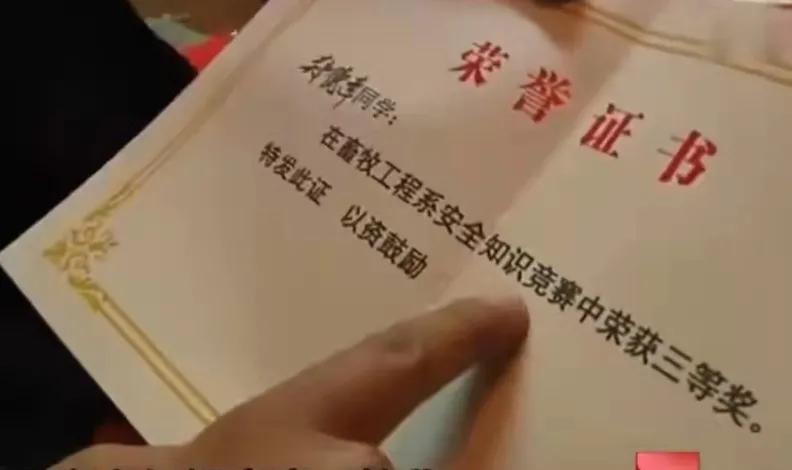 荣誉证书
同学：
在畜牧工程系安全知识竞赛中荣获三等奖。
特发此证 以资鼓励